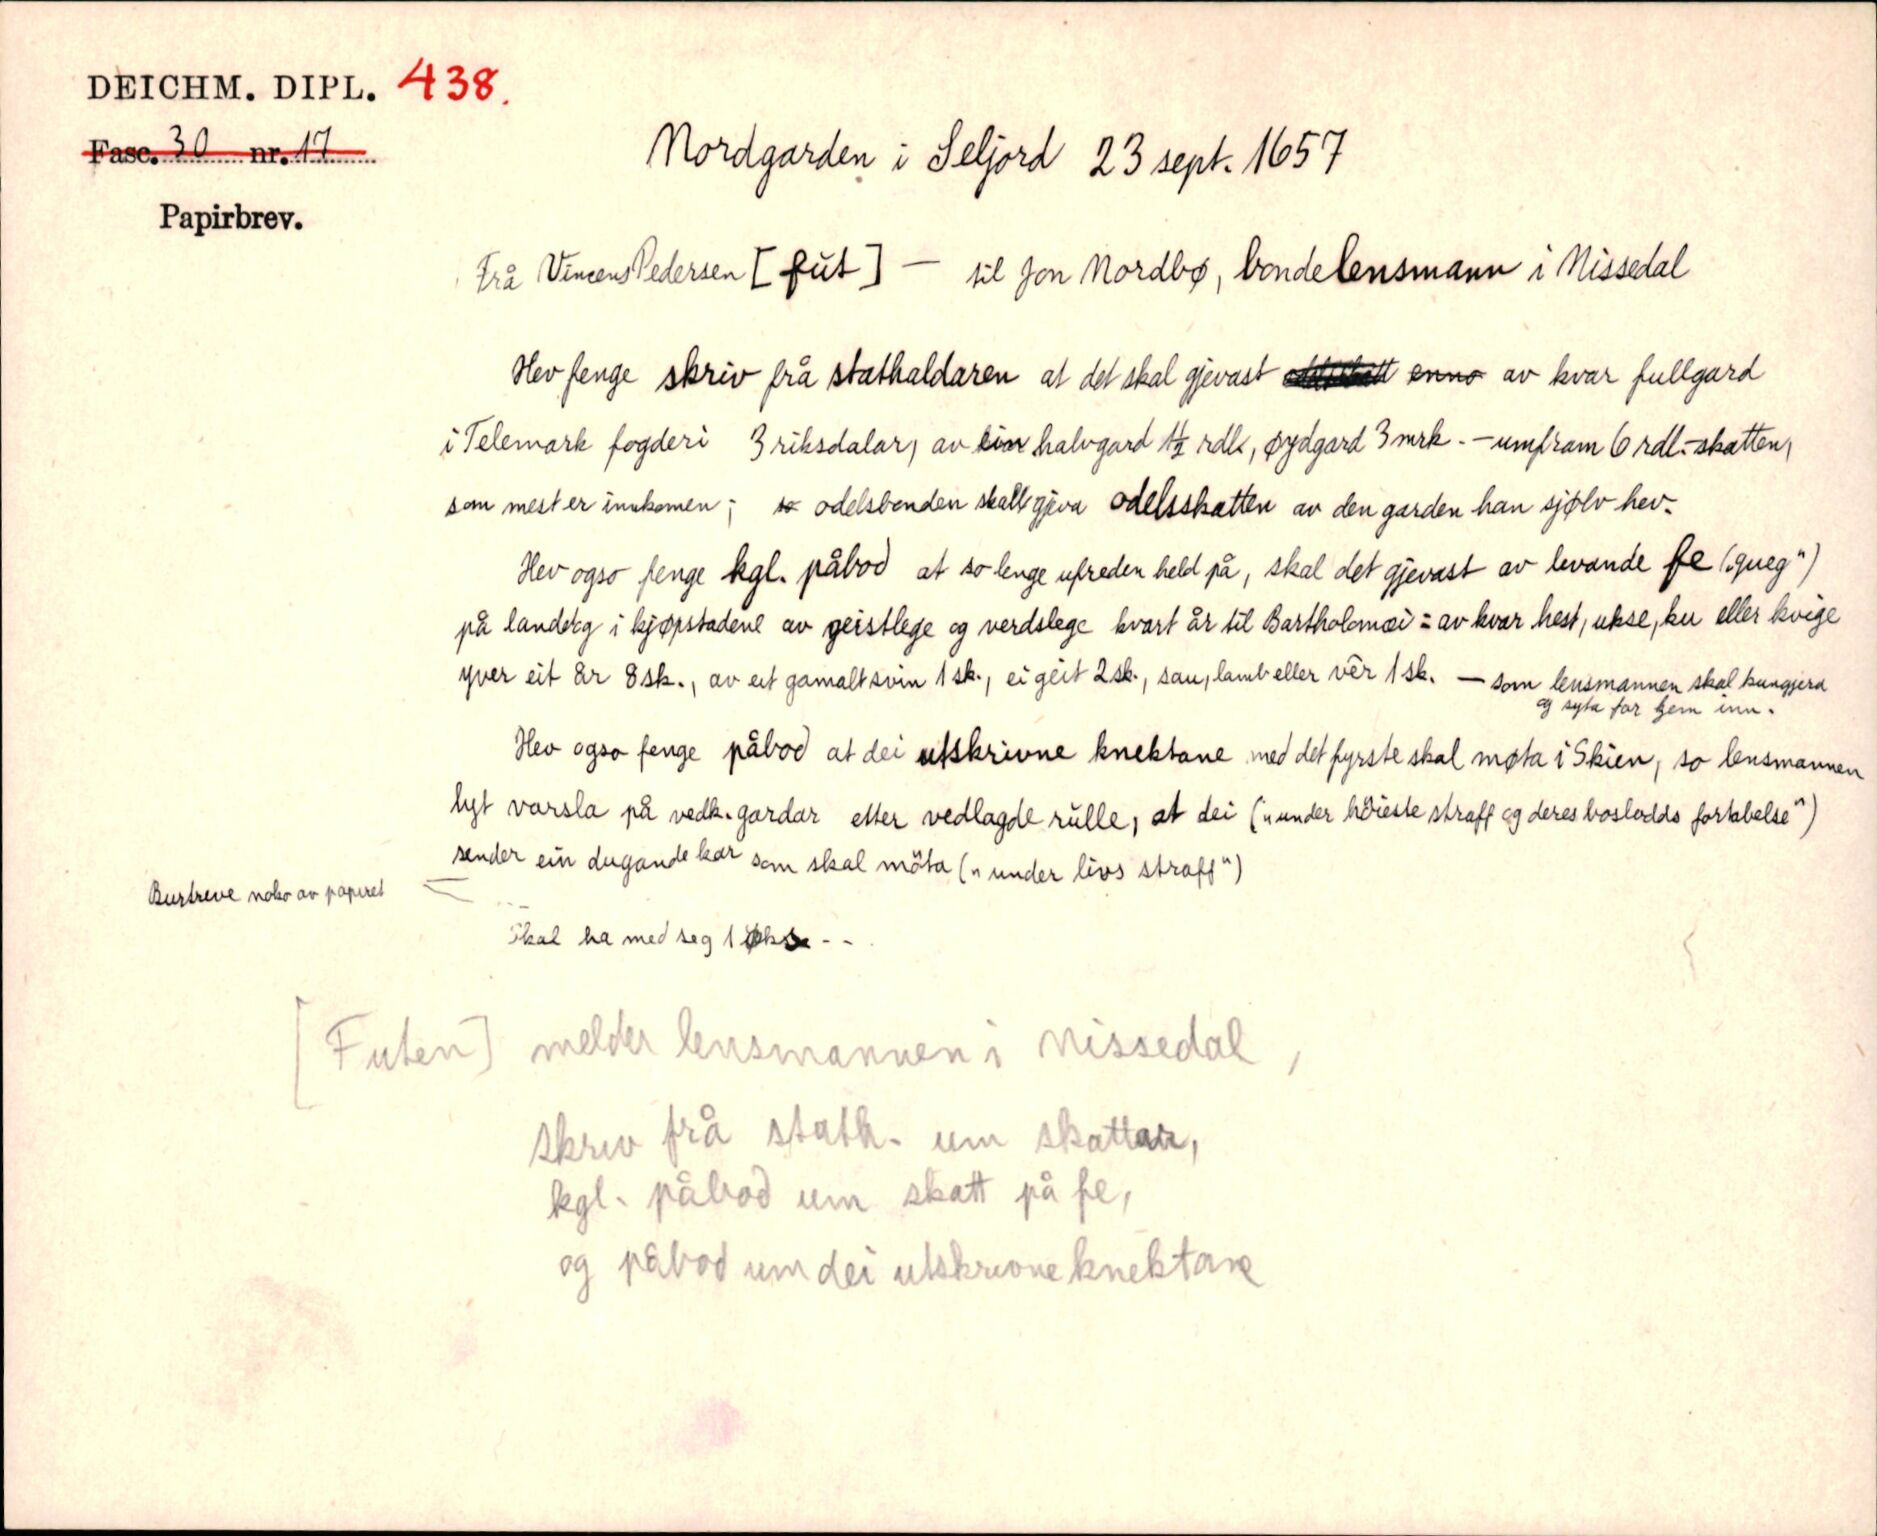 DEICHM. DIPL. 438.
Fasc. 30 nr. 17
Papirbrev.
Nordgarden i Seljord 23 sept. 1657
Frå Vincens Pedersen [fut] — til Jon Nordbø, bondelensmann i Nissedal
Hev fenge skriv frå stathaldaren at det skal gjevast enno av kvar fullgard
i Telemark fogderi 3 riksdalar, av ein halvgard 1½ rdl., øydgard 3 mrk. - umfram 6 rdl.-skatten,
som mest er innkomen; so odelsbonden skall gjeva odelsskatten av den garden han sjølv hev.
Hev ogso fenge kgl. påbod at so lenge ufreden held på, skal det gjevast av levande fe („queg")
på land og i kjøpstadene av geistlege og verdslege kvart år til Bartholomæi: av kvar hest, ukse, ku eller kvige
yver eit år 8 sk., av eit gamalt svin 1 sk., ei geit 2 sk., sau, lamb eller vêr 1 sk. — som lensmannen skal kungjera
og syta for kjem inn.
Hev ogso fenge påbod at dei utskrivne knektane med det fyrste skal møta i Skien, so lensmannen
lyt varsla på vedk. gardar etter vedlagde rulle, at dei („under höieste straff og deres boslodds fortabelse")
sender ein dugande kar som skal möta („under livs straff")
Burtreve noko av papiret
Skal ha med seg 1 økse - -
[Futen] melder lensmannen i Nissedal,
skriv frå stath. um skattar,
kgl. påbod um skatt på fe,
og påbod um dei utskrivne knektane